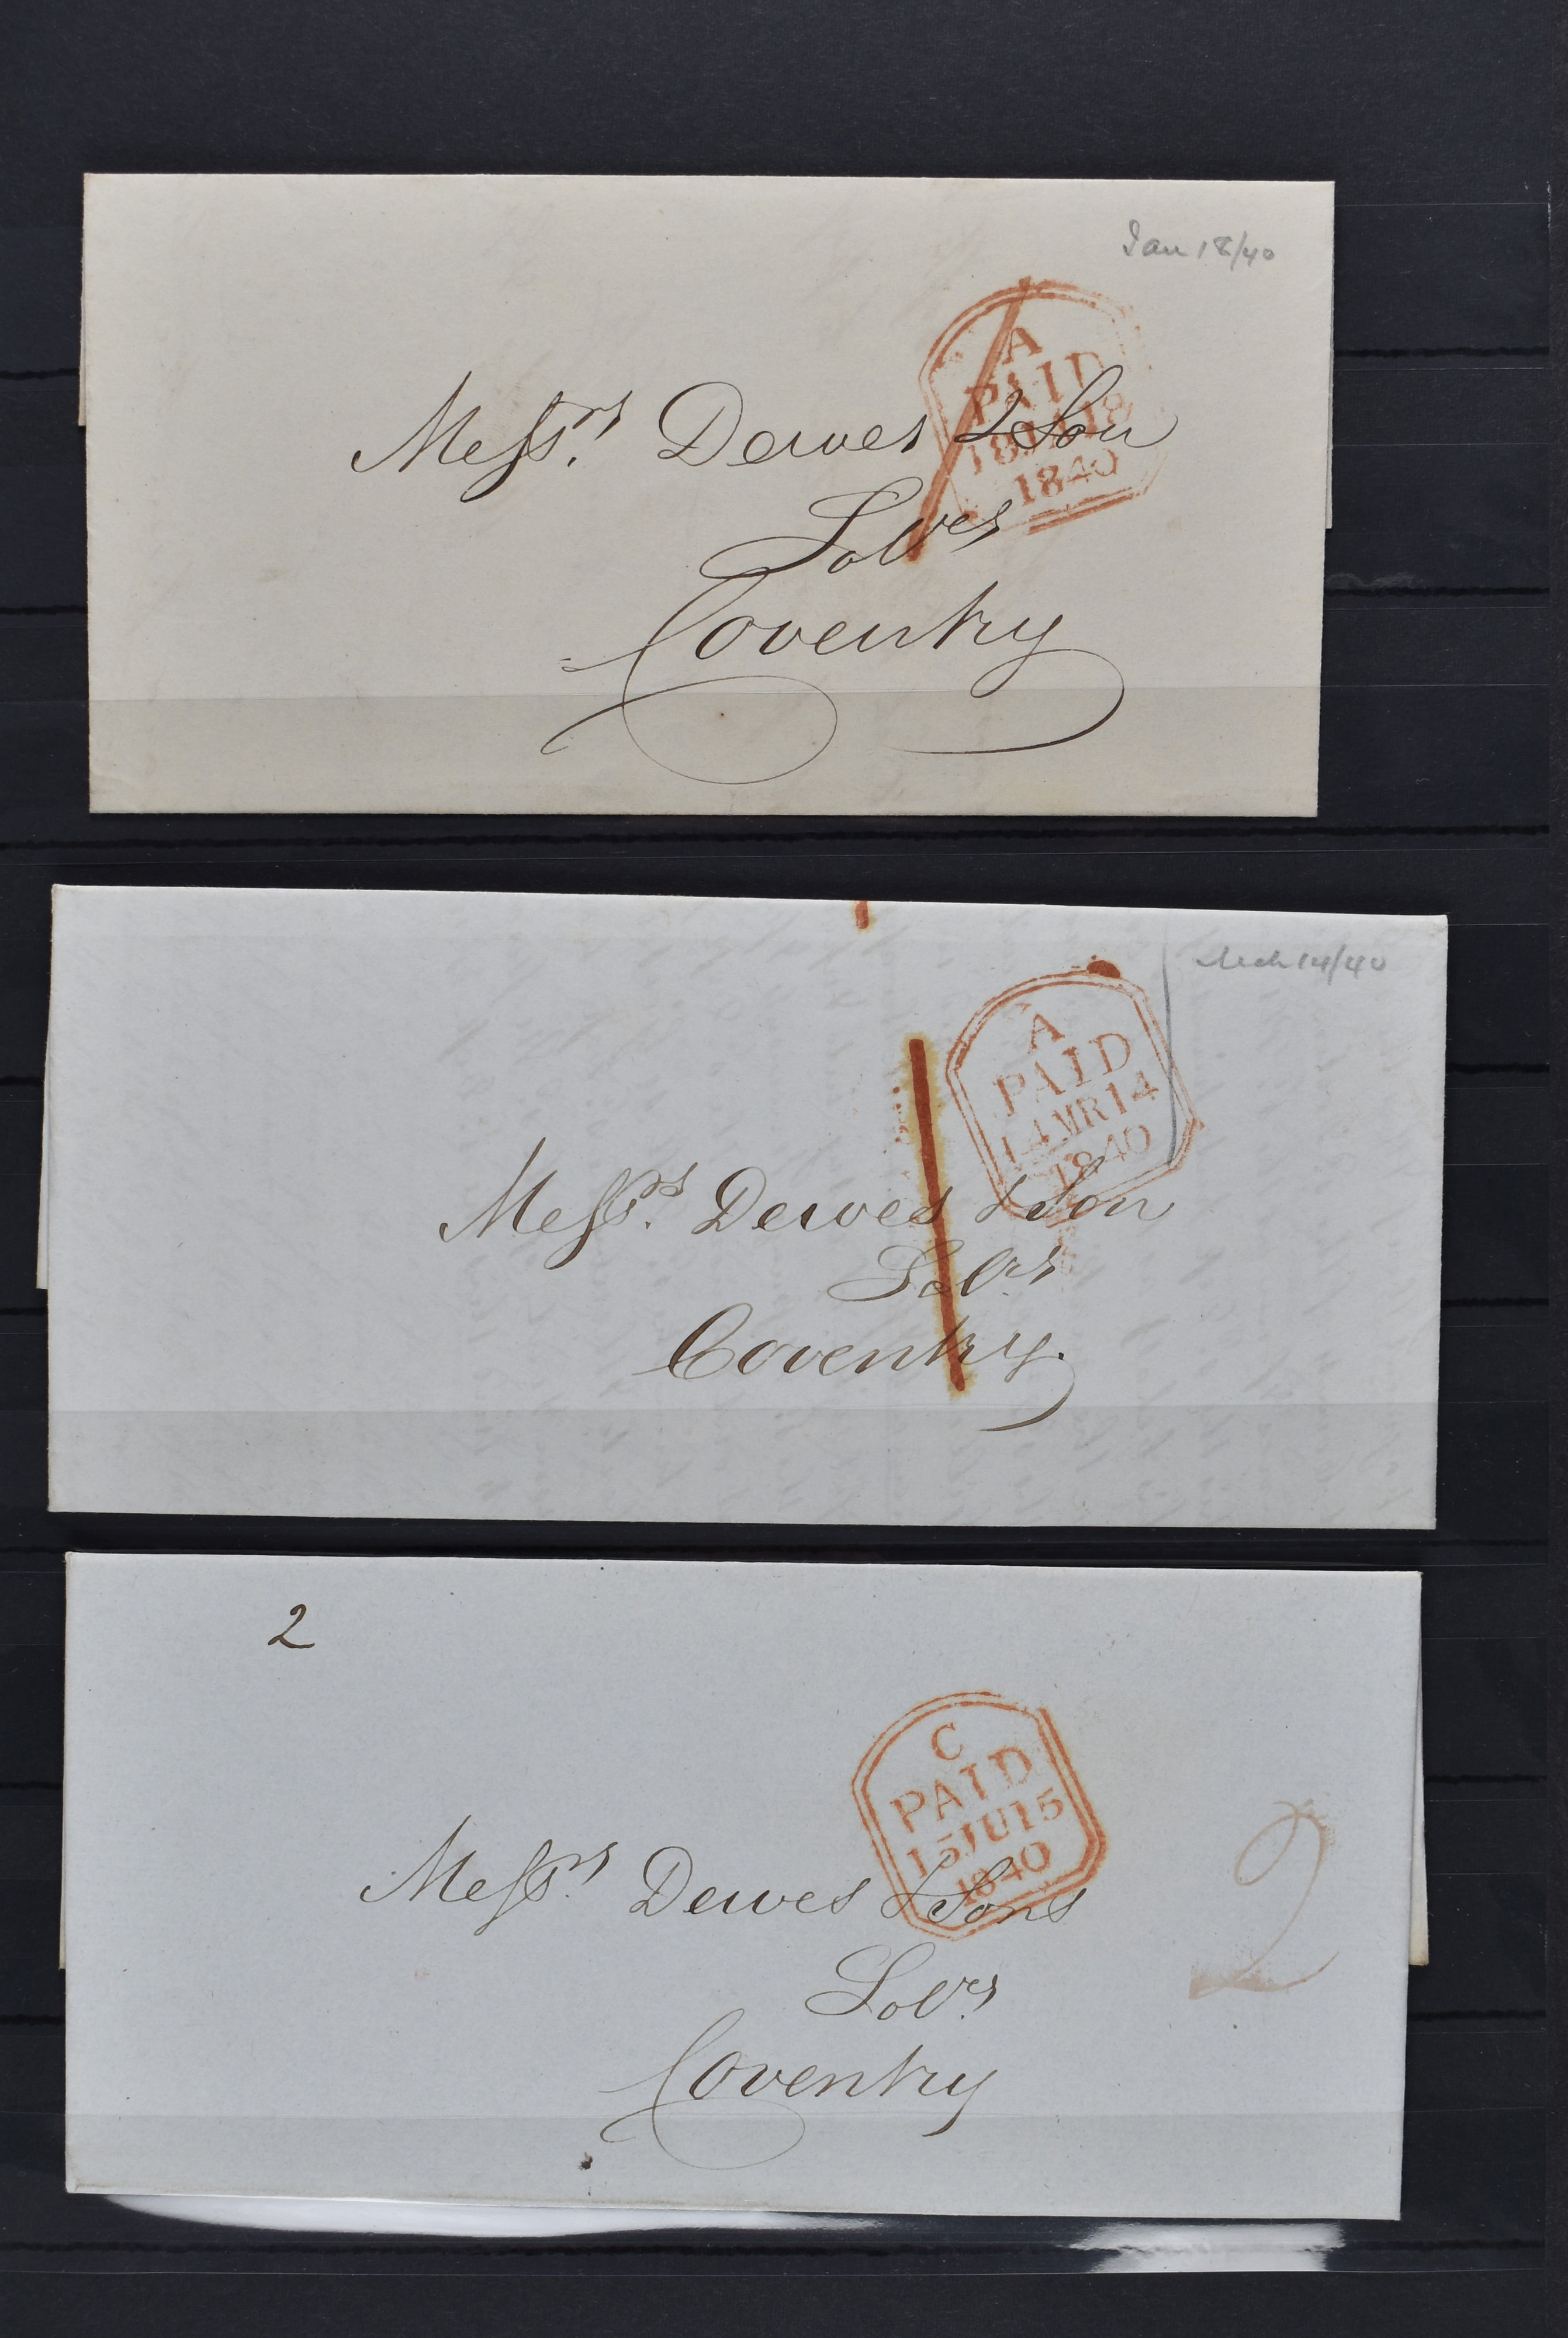 Jan 18/40
A
PAID
18 JA 18
1840
Messrs Dewes & Son
Solrs
Coventry
Mch 14/40
A
PAID
14 MR 14
1840
Messrs. Dewes & Son
Solrs
Coventry.
2
C
PAID
15 JU 15
1840
2
Messrs Dewes & Sons
Solrs
Coventry